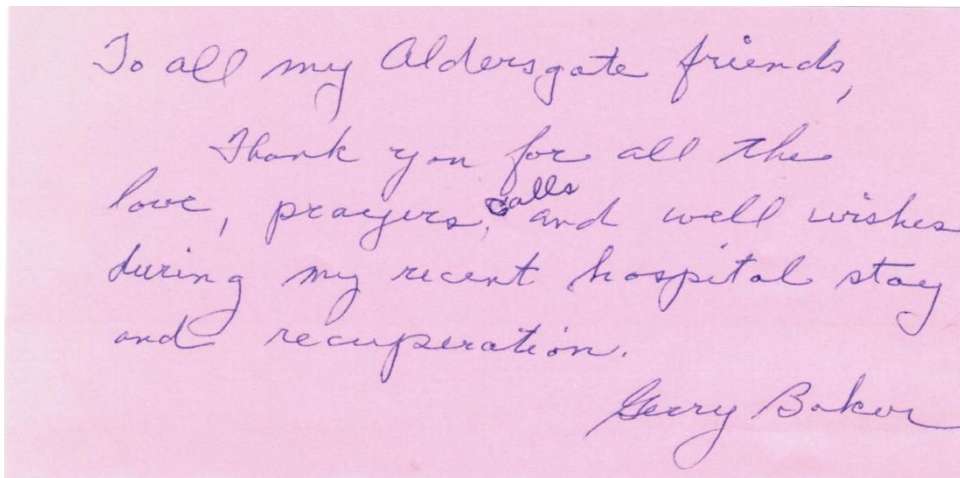 To all my Aldersgate friends,
Thank you for all the
love, prayers, calls and well wishes
during my recent hospital stay
and recuperation.
Gerry Baker